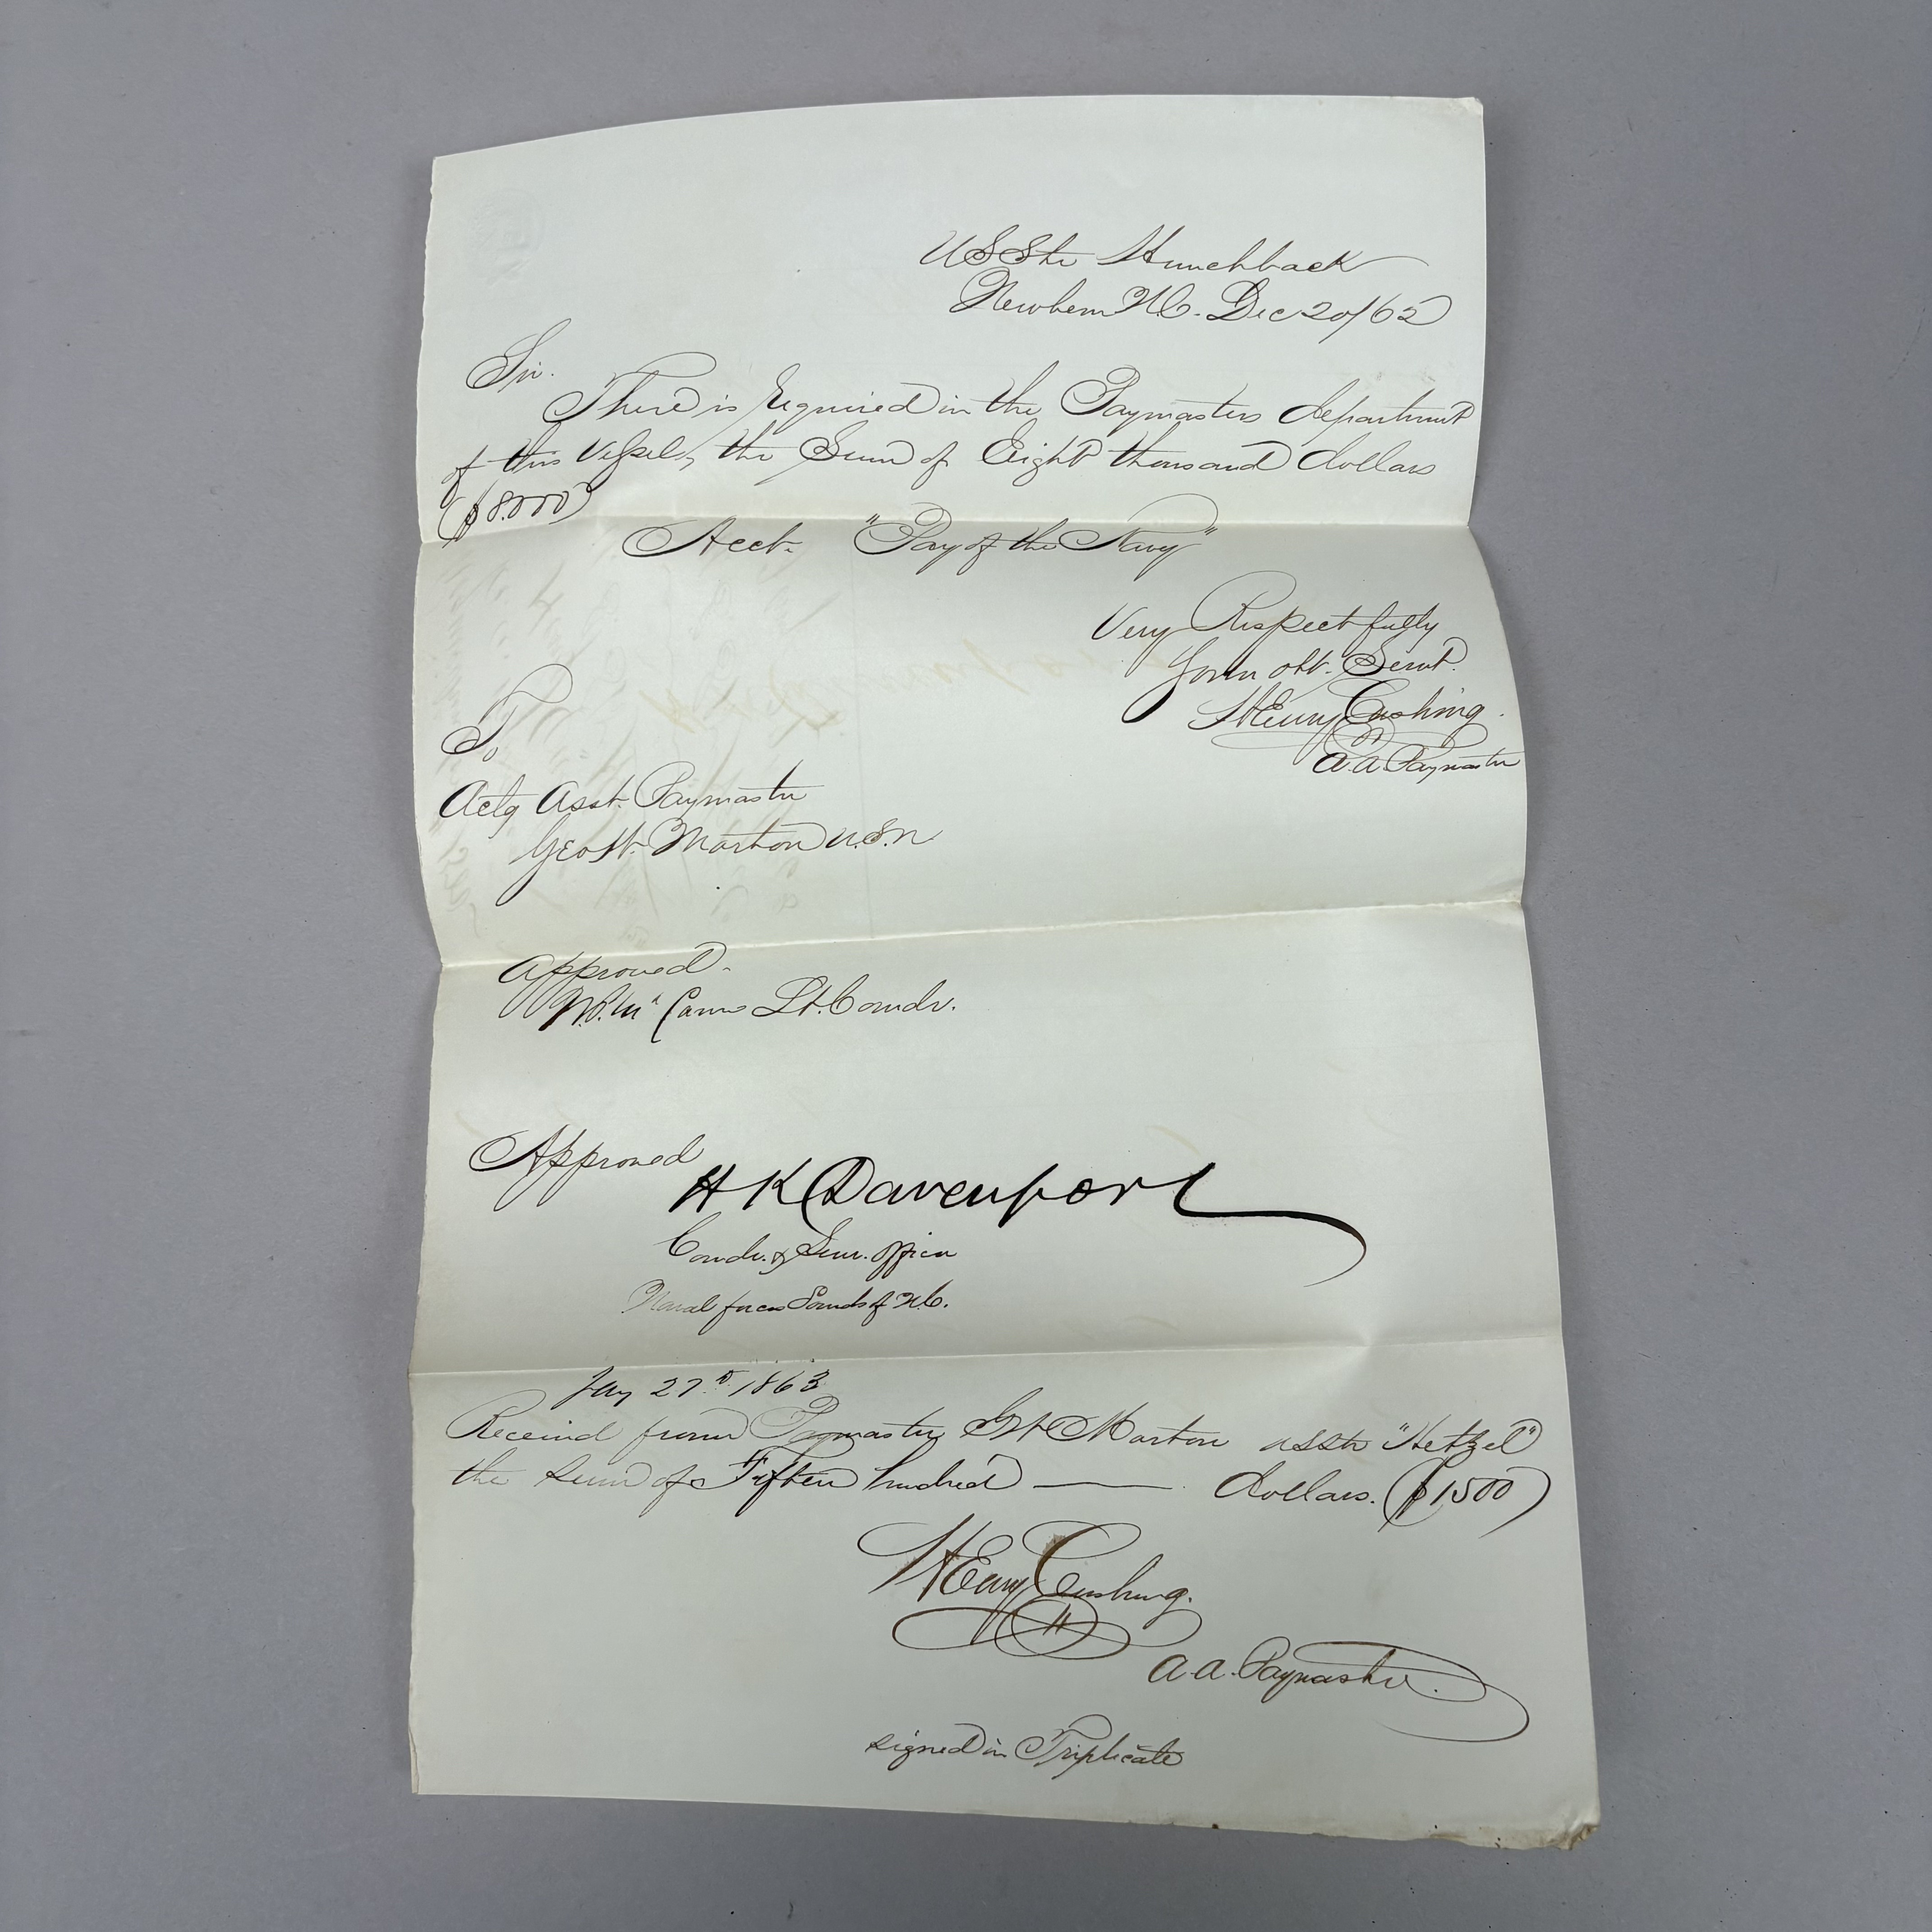 USStr Hunchback
Newbern N.C. Dec 20/62
Sir.
There is required in the Paymasters department
of this Vessel, the Sum of Eight thousand dollars
($8.000)
Acct. "Pay of the Navy"
Very Respectfully
Your obt. Servt.
Henry Cushing.
A.A. Paymaster
To
Actg Asst. Paymaster
Geo W. Morton U.S.N.
Approved.
W.P. McCann Lt. Comdr.
Approved
H K Davenport
Comdr. & Senr. Officer
Naval forces Sounds of N.C.
Jany 27th 1863
Received from Paymaster G W Morton USStr "Hetzel"
the Sum of Fifteen hundred dollars. ($1500)
Henry Cushing.
A.A. Paymaster.
signed in Triplicate